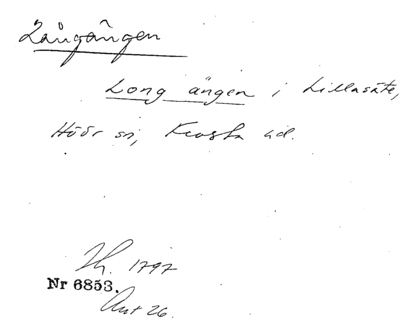 Långängen
Long ängen i Lillasäte,
Höör sn, Frosta hd.
Th. 1797
Nr 6853.
Ant 26.